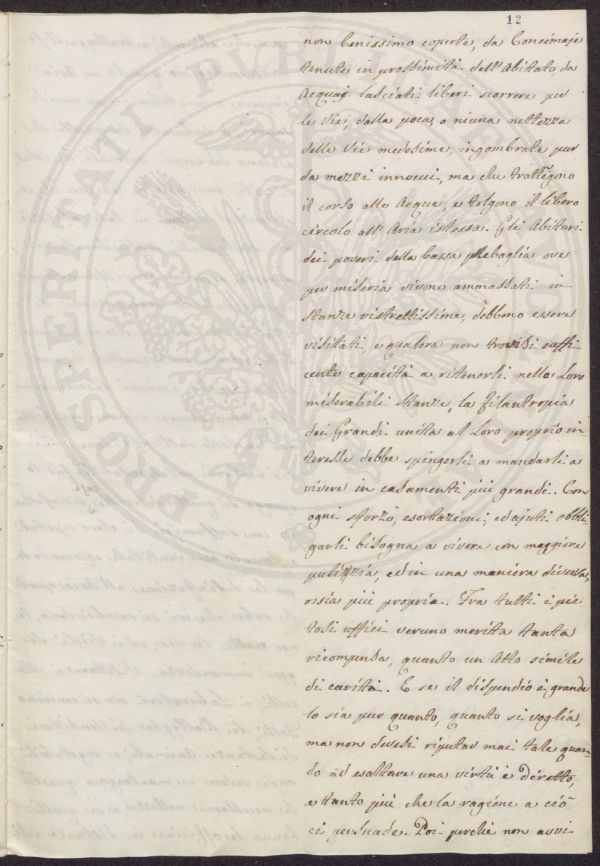 12
non benissimo coperte, da Concimaje
tenute in prossimità dell'Abitato, da
Acquaj lasciati liberi scorrere per
le Vie, dalla poca, o niuna nettezza
delle Vie medesime, ingombrate pur
da mezzi innocui, ma che trattegono
il corso alle Acque, e tolgono il libero
circolo all'Aria istessa. Gli Abituri
dei poveri della bassa plebaglia ove
per miseria vivono ammassati in
stanze ristrettissime, debbono essere
visitati, e qualora non trovisi suffi
cente capacità a ritenerli nelle Loro
miserabili stanze, la filantropia
dei Grandi unita al Loro proprio in
teresse debbe spingerli a mandarli a
vivere in casamenti più grandi. Con
ogni sforzo, esortazioni, ed ajuti obbli
garli bisogna a vivere con maggiore
pulizzia, ed in una maniera diversa,
ossia più propria. Tra tutti i pie
tosi uffici veruno merita tanta
ricompensa, quanto un Atto simile
di carità. E se il dispendio è grande
lo sia pur quanto, quanto si voglia,
ma non devesi riputar mai tale quan-
do ad esaltare una virtù è diretto,
e tanto più che la ragione a ciò
ci persuade. Poi perchè non avvi
PROSPERITATI PUBLICAE